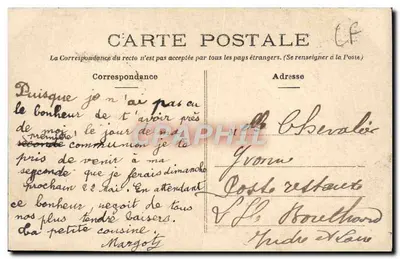 CARTE POSTALE
La Correspondance du recto n'est pas acceptée par tous les pays étrangers. (Se renseigner à la Poste)
Correspondance
Puisque je n'ai pas eu
le bonheur de t'avoir près
de moi, le jour de ma
première
seconde communion je te
pris de venir à ma
segonde que je ferais dimanche
prochain 22 mai. En attendant
ce bonheur, reçoit de tous
nos plus tendre baisers.
ta petite cousine.
Margot
Adresse
Mlle Chevalier
Yvonne
Poste restante
Indre et Loire
LF
CPARAMA